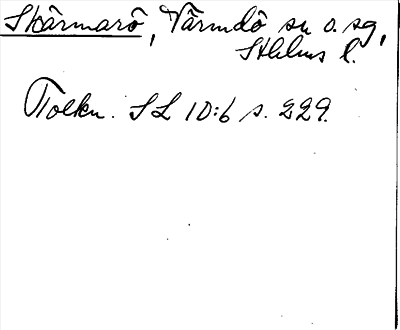 Skärmarö, Värmdö sn o. sg,
Sthlms l.
Tolkn. SL 10:6 s. 229.